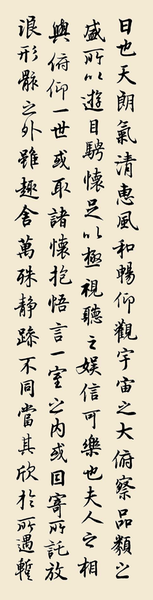 日也天朗氣清惠風和暢仰觀宇宙之大俯察品類之
盛所以遊目騁懷足以極視聽之娛信可樂也夫人之相
與俯仰一世或取諸懷抱悟言一室之內或因寄所託放
浪形骸之外雖趣舍萬殊静躁不同當其欣於所遇暫